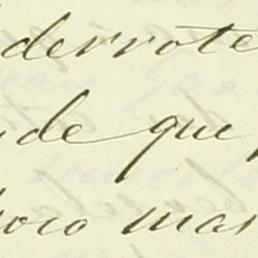 derrote
de que
poco mas